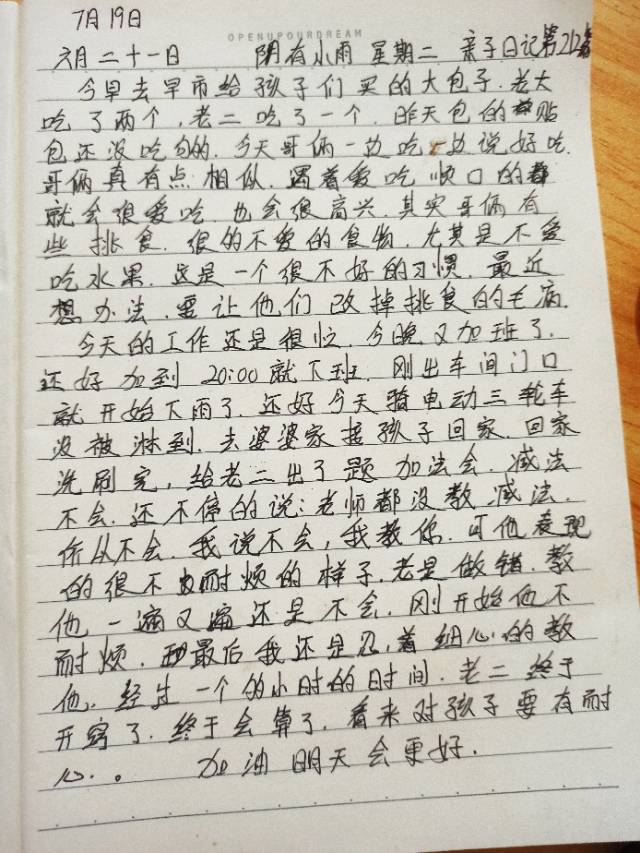 7月19日
OPENUPOURDREAM
六月二十一日 阴有小雨 星期二 亲子日记第212篇
今早去早市给孩子们买的大包子.老大
吃了两个,老二吃了一个.昨天包的贴
包还没吃的.今天哥俩一边吃一边说好吃.
哥俩真有点相似.遇着爱吃顺口的都
就会很爱吃.也会很高兴.其实哥俩有
些挑食.很的不爱的食物.尤其是不爱
吃水果.这是一个很不好的习惯.最近
想办法.要让他们改掉挑食的毛病.
今天的工作还是很忙.今晚又加班了.
还好加到20:00就下班.刚出车间门口
就开始下雨了.还好今天骑电动三轮车
没被淋到.去婆婆家接孩子回家.回家
洗刷完,给老二出了题 加法会.减法
不会.还不停的说:老师都没教减法.
所以不会.我说不会,我教你.可他表现
的很不耐烦的样子.老是做错.教
他一遍又遍还是不会.刚开始他不
耐烦.最后我还是忍着细心的教
他.经过一个的小时的时间.老二终于
开窍了.终于会算了.看来对孩子要有耐
心.。 加油明天会更好.